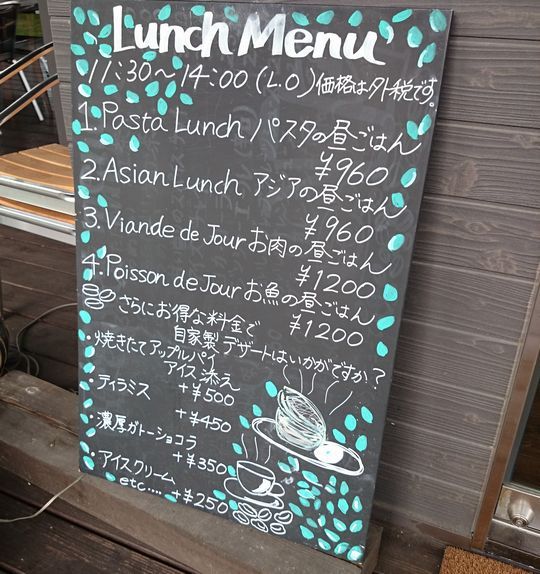 Lunch Menu
11:30～14:00 (L.O) 価格は外税です。
1. Pasta Lunch パスタの昼ごはん
¥960
2. Asian Lunch アジアの昼ごはん
¥960
3. Viande de Jour お肉の昼ごはん
¥1200
4. Poisson de Jour お魚の昼ごはん
¥1200
さらにお得な料金で
自家製 デザートはいかがですか？
・焼きたてアップルパイ
アイス添え
+¥500
・ティラミス
+¥450
・濃厚ガトーショコラ
+¥350
・アイスクリーム
etc.... +¥250